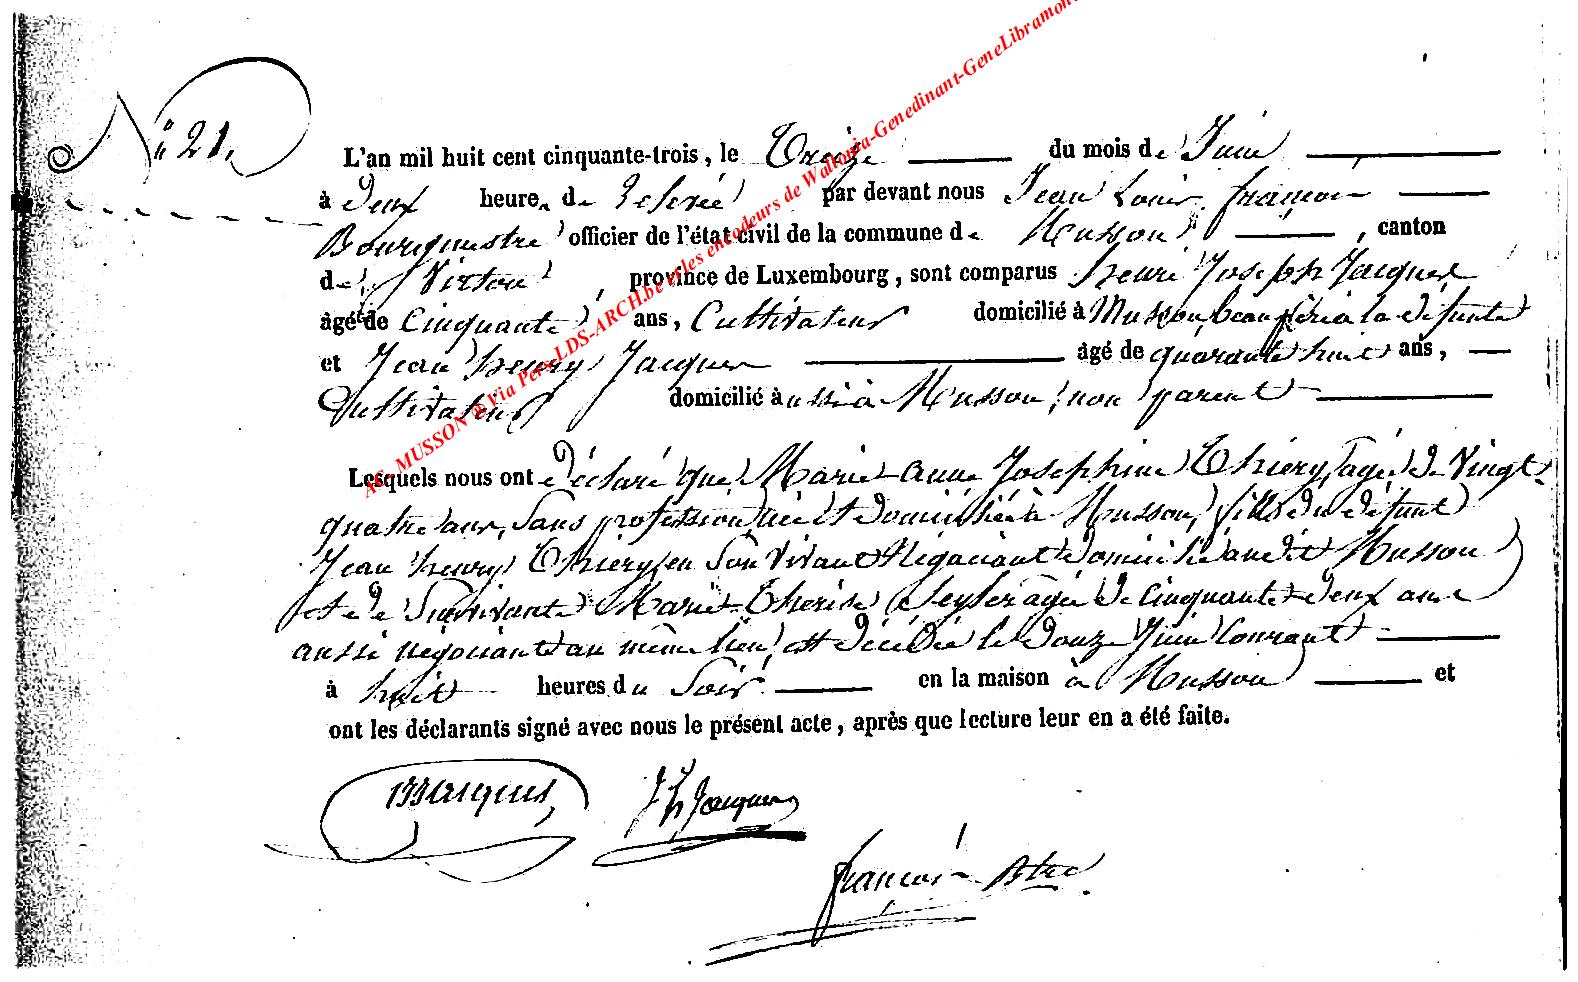 N° 21.
L'an mil huit cent cinquante-trois, le Treize du mois de Juin
à Deux heures de relevée par devant nous Jean Louis françois
Bourgmestre officier de l'état civil de la commune de Musson, canton
de Virton, province de Luxembourg, sont comparus henri Joseph Jacques
âgé de Cinquante ans, Cultivateur domicilié à Musson, beau père à la défunte
et Jean henry Jacques âgé de quarante huit ans,
Cultivateur domicilié aussi à Musson, non parent
Lesquels nous ont déclaré que Marie anne Josephine Thiery, agée de Vingt
quatre ans, Sans profession née et domiciliée à Musson, fille du défunt
Jean henry Thiery en Son Vivant Négociant domicilié audit Musson
et de Survivante Marie Therese agée de Cinquante deux ans
aussi négociante au même lieu, est décédée le douze Juin Courant
à huit heures du Soir en la maison à Musson et
ont les déclarants signé avec nous le présent acte, après que lecture leur en a été faite.
Jacques
J h Jacques
françois Btre
AC. MUSSON © Via Pers. LDS-ARCH.be et les encodeurs de Wallonia-Genedinant-GeneLibramont